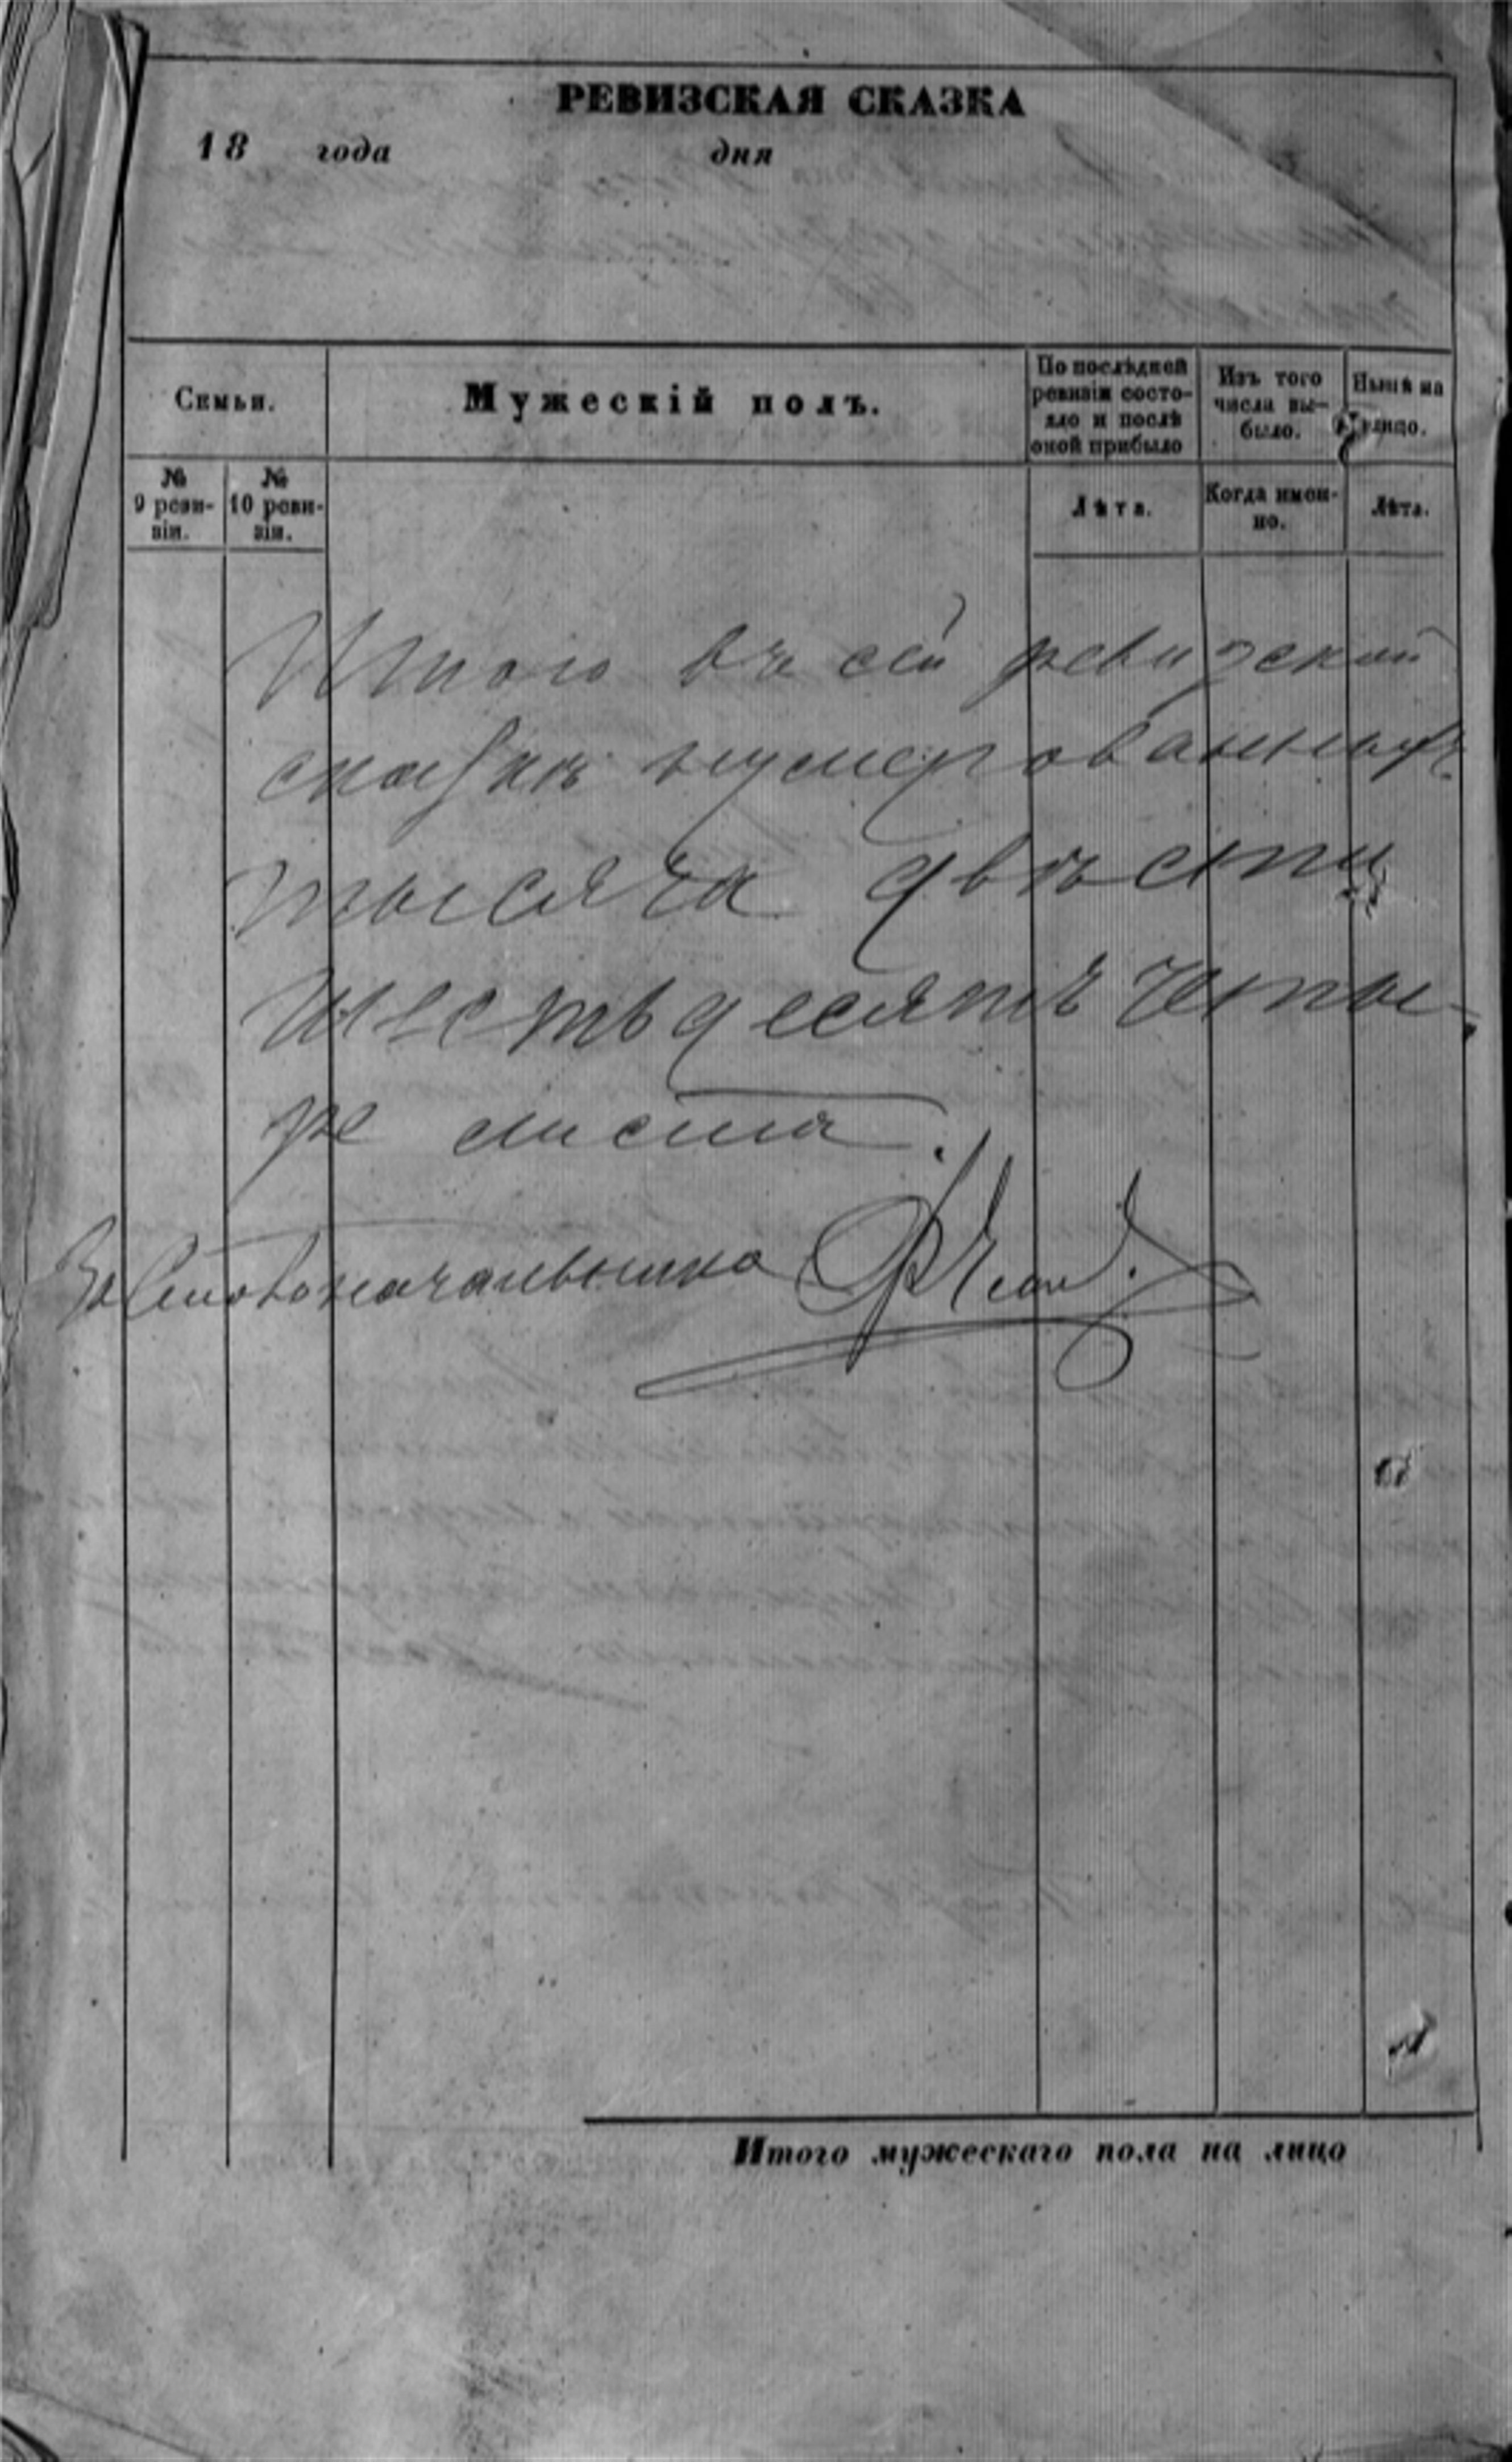 РЕВИЗСКАЯ СКАЗКА
18 года дня
Семьи.
Мужескій полъ.
По послѣдней
ревизіи состо-
яло и послѣ
оной прибыло
Изъ того
числа вы-
было.
Нынѣ на
лицо.
№
9 реви-
зіи.
№
10 реви-
зіи.
Лѣта.
Когда имен-
но.
Лѣта.
Итого въ сей ревизской
сказкѣ нумерованныхъ
тысяча двѣсти
шестьдесятъ четы-
ре листа.
За Столоначальника
Итого мужескаго пола на лицо